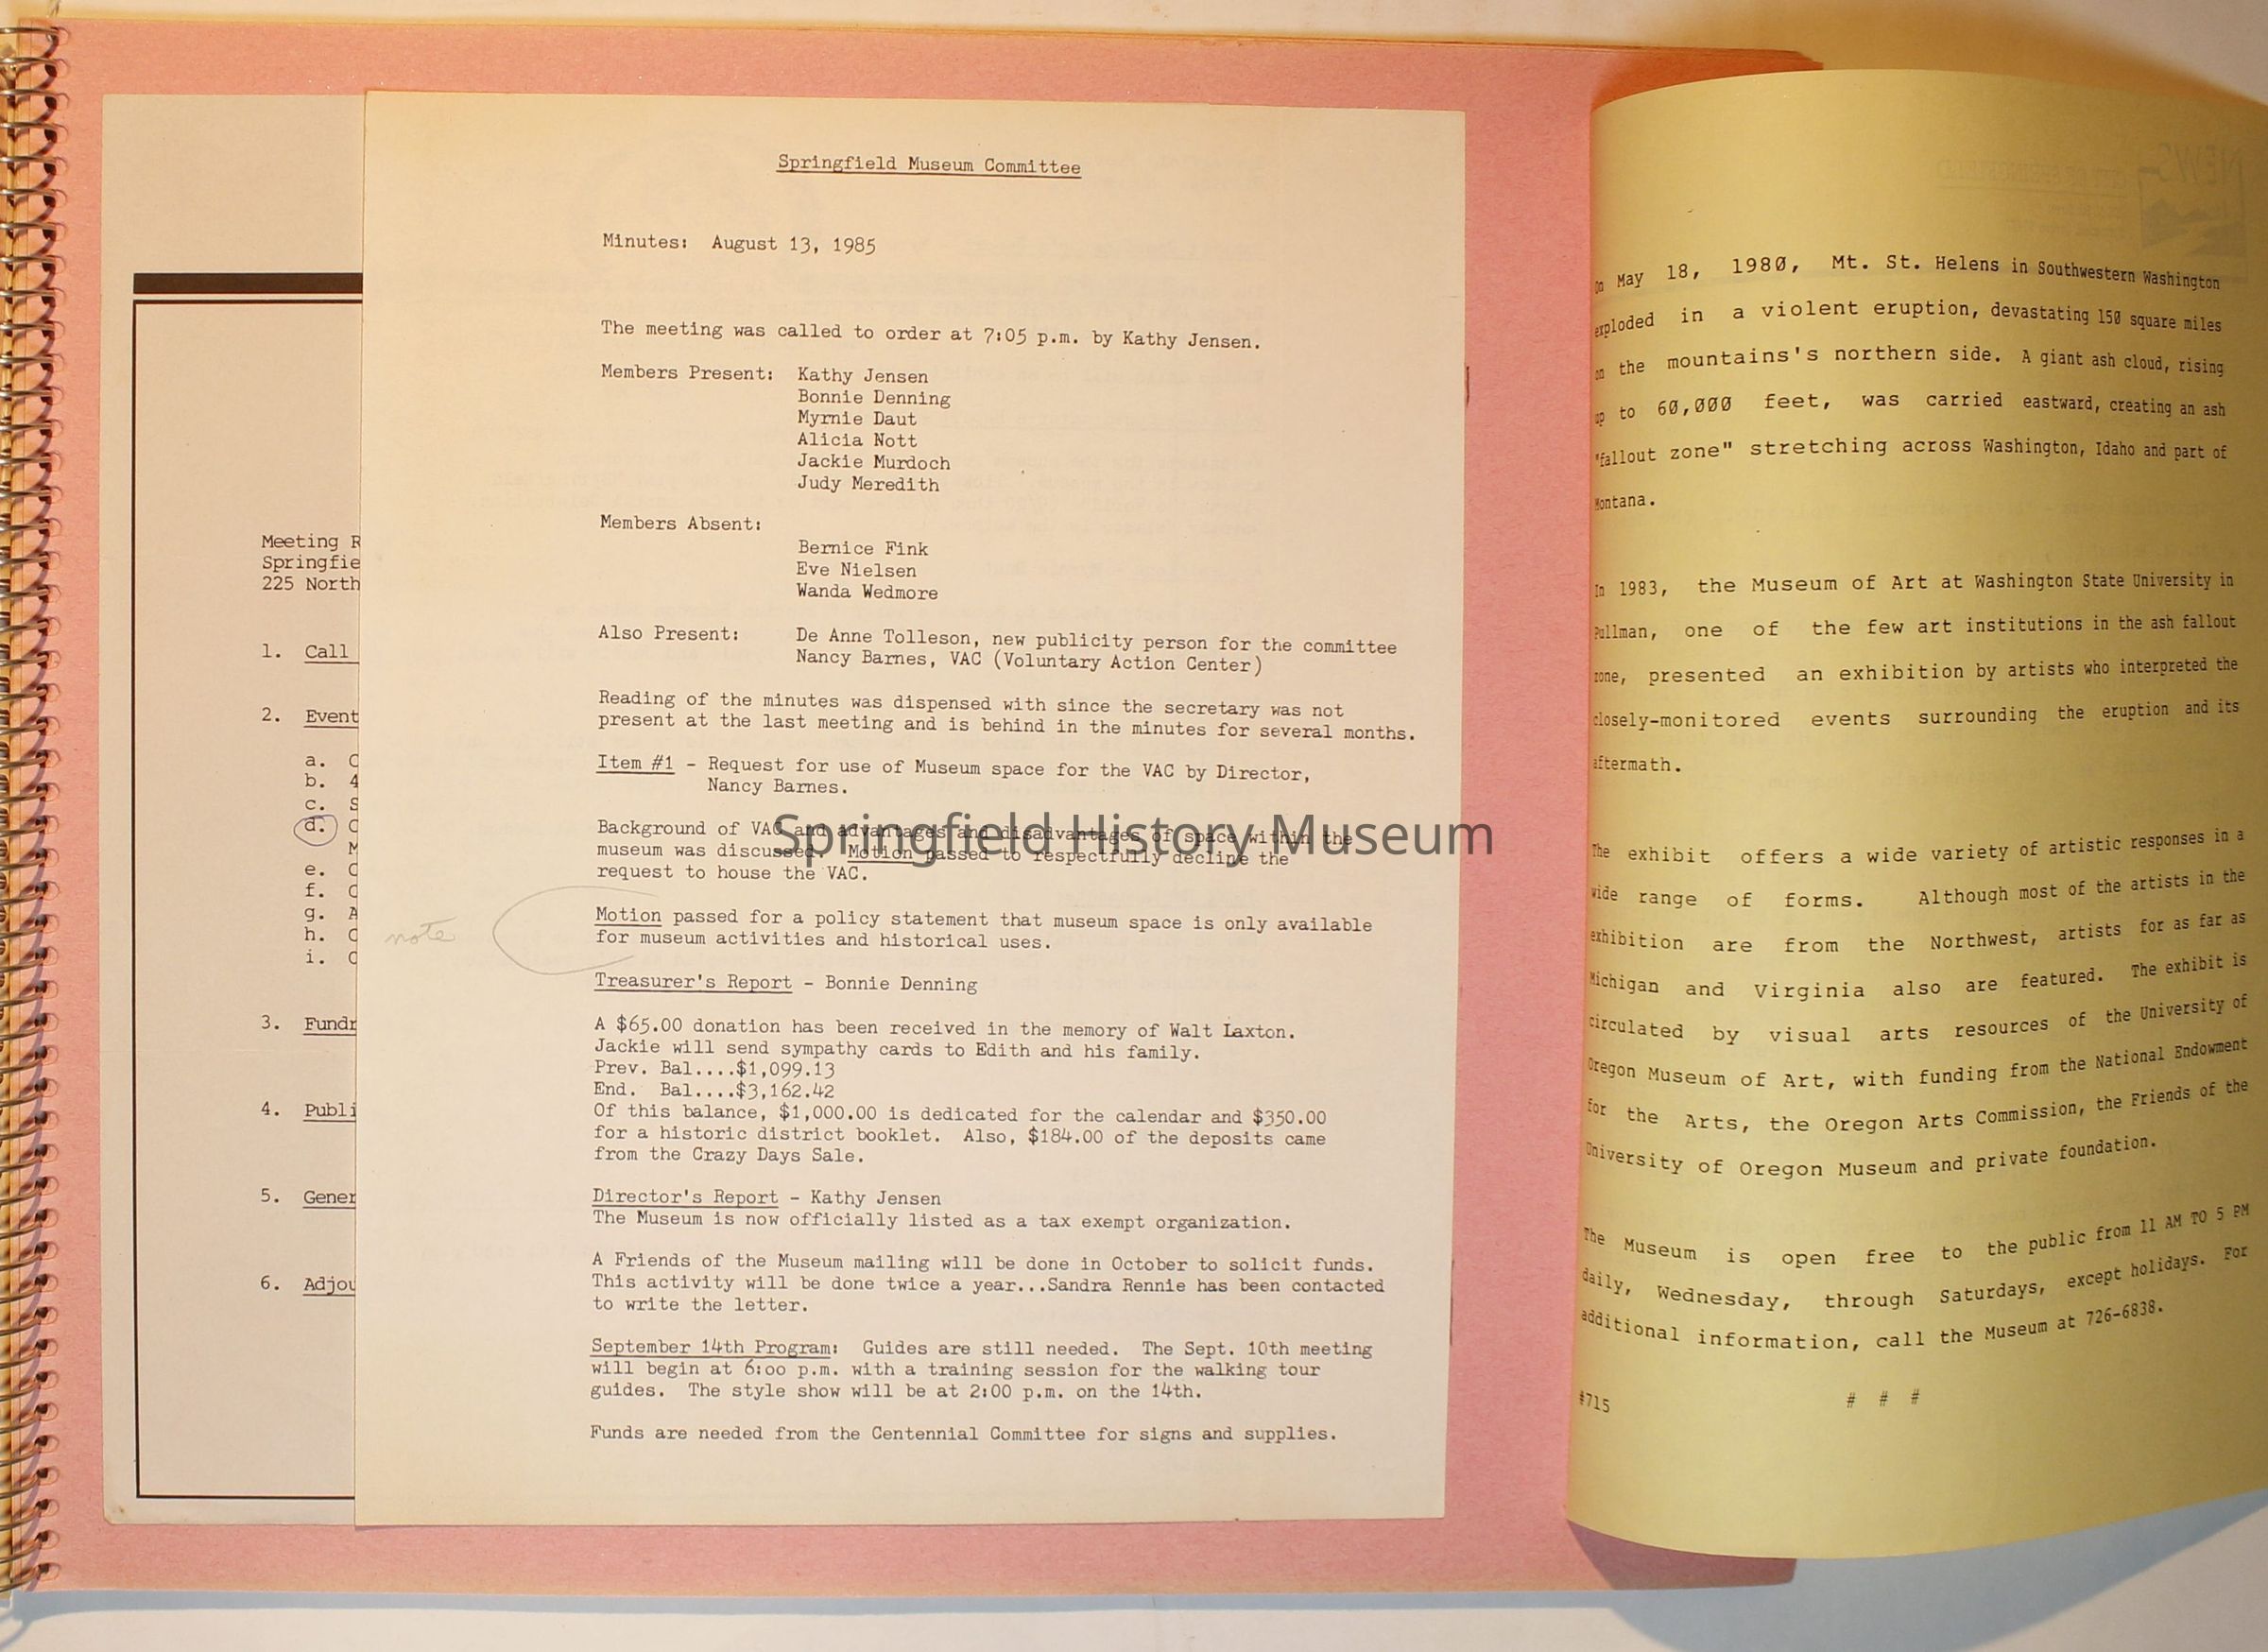 Meeting R
Springfie
225 North
1. Call
2. Event
a. C
b. 4
c. S
d. C
M
e. C
f. C
g. A
h. C
i. C
3. Fundr
4. Publi
5. Gener
6. Adjou
Springfield Museum Committee
Minutes: August 13, 1985
The meeting was called to order at 7:05 p.m. by Kathy Jensen.
Members Present: Kathy Jensen
Bonnie Denning
Myrnie Daut
Alicia Nott
Jackie Murdoch
Judy Meredith
Members Absent:
Bernice Fink
Eve Nielsen
Wanda Wedmore
Also Present: De Anne Tolleson, new publicity person for the committee
Nancy Barnes, VAC (Voluntary Action Center)
Reading of the minutes was dispensed with since the secretary was not
present at the last meeting and is behind in the minutes for several months.
Item #1 - Request for use of Museum space for the VAC by Director,
Nancy Barnes.
Background of VAC and advantages and disadvantages of space within the
museum was discussed. Motion passed to respectfully decline the
request to house the VAC.
Springfield History Museum
note
Motion passed for a policy statement that museum space is only available
for museum activities and historical uses.
Treasurer's Report - Bonnie Denning
A $65.00 donation has been received in the memory of Walt Laxton.
Jackie will send sympathy cards to Edith and his family.
Prev. Bal....$1,099.13
End. Bal....$3,162.42
Of this balance, $1,000.00 is dedicated for the calendar and $350.00
for a historic district booklet. Also, $184.00 of the deposits came
from the Crazy Days Sale.
Director's Report - Kathy Jensen
The Museum is now officially listed as a tax exempt organization.
A Friends of the Museum mailing will be done in October to solicit funds.
This activity will be done twice a year...Sandra Rennie has been contacted
to write the letter.
September 14th Program: Guides are still needed. The Sept. 10th meeting
will begin at 6:oo p.m. with a training session for the walking tour
guides. The style show will be at 2:00 p.m. on the 14th.
Funds are needed from the Centennial Committee for signs and supplies.
On May 18, 1980, Mt. St. Helens in Southwestern Washington
exploded in a violent eruption, devastating 150 square miles
on the mountains's northern side. A giant ash cloud, rising
up to 60,000 feet, was carried eastward, creating an ash
"fallout zone" stretching across Washington, Idaho and part of
Montana.
In 1983, the Museum of Art at Washington State University in
Pullman, one of the few art institutions in the ash fallout
zone, presented an exhibition by artists who interpreted the
closely-monitored events surrounding the eruption and its
aftermath.
The exhibit offers a wide variety of artistic responses in a
wide range of forms. Although most of the artists in the
exhibition are from the Northwest, artists for as far as
Michigan and Virginia also are featured. The exhibit is
circulated by visual arts resources of the University of
Oregon Museum of Art, with funding from the National Endowment
for the Arts, the Oregon Arts Commission, the Friends of the
University of Oregon Museum and private foundation.
The Museum is open free to the public from 11 AM TO 5 PM
daily, Wednesday, through Saturdays, except holidays. For
additional information, call the Museum at 726-6838.
#715 # # #